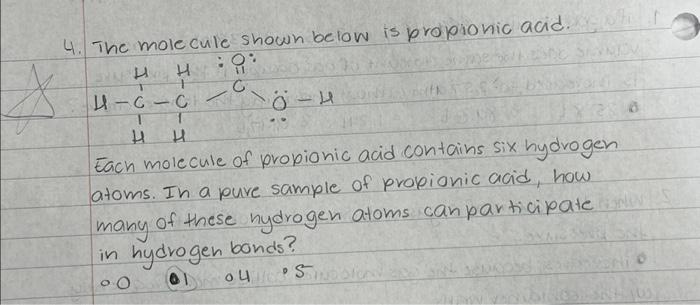 4. The molecule shown below is propionic acid.
H H :O:
H-C-C-C-Ö-H
H H
Each molecule of propionic acid contains six hydrogen
atoms. In a pure sample of propionic acid, how
many of these hydrogen atoms can participate
in hydrogen bonds?
0 1 4 5